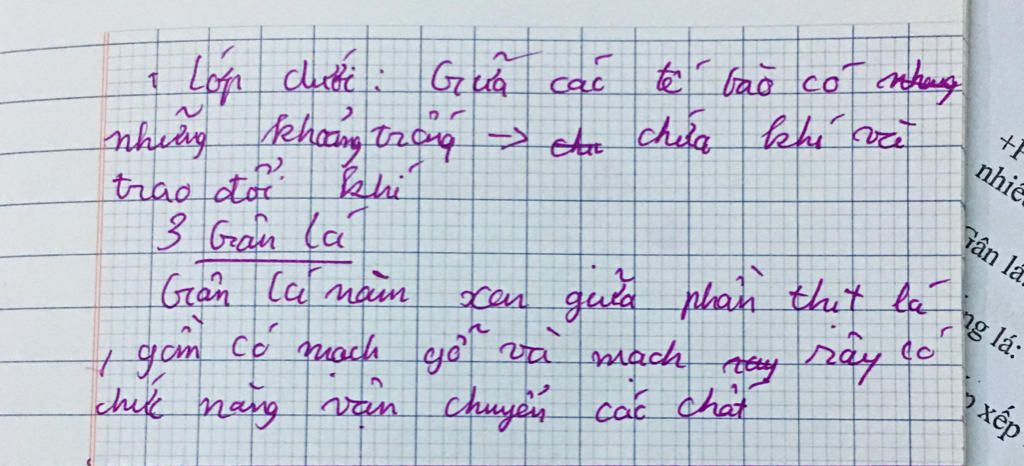 + Lớp dưới: Giữa các tế bào có nhung
những khoảng trống -> chứa khí và
trao đổi khí
3 Gân lá
Gân lá nằm xen giữa phần thịt lá
, gồm có mạch gỗ và mạch rây có
chức năng vận chuyển các chất
+P
nhiề
Gân lá
ng lá:
xếp